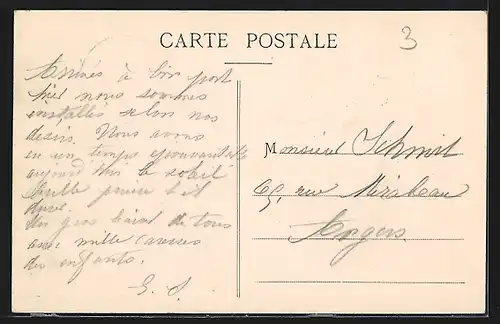 CARTE POSTALE
3
Arrivés à bon port
hier nous sommes
installés selon nos
désirs. Nous avons
eu un temps épouvantable
aujourd'hui le soleil
brille
Un gros baiser de tous
avec mille caresses
des enfants.
E. S.
Monsieur Schmit
65, rue Mirabeau
Angers